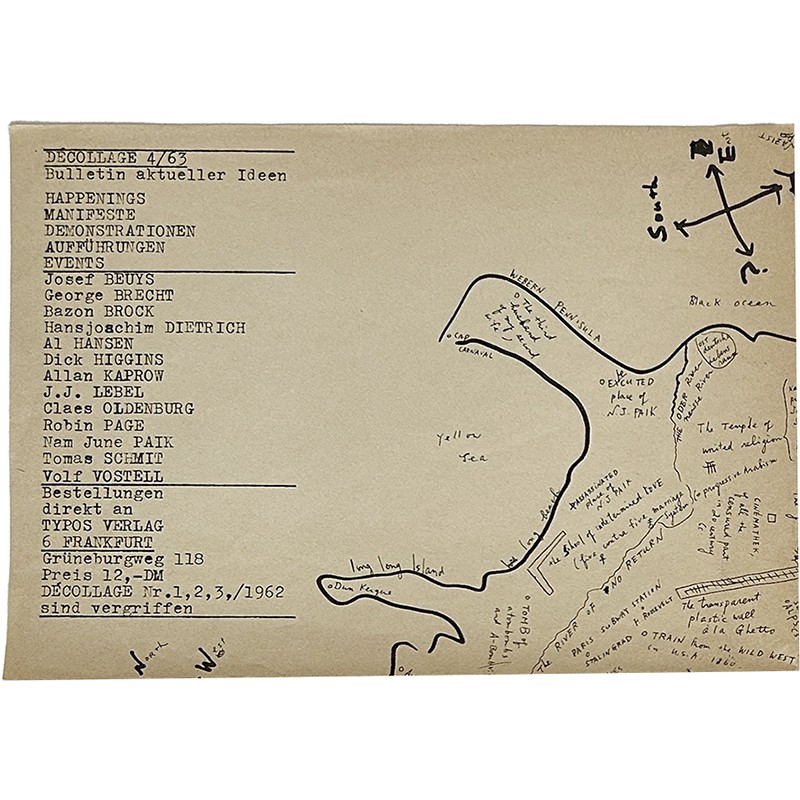 DÉCOLLAGE 4/63
Bulletin aktueller Ideen
HAPPENINGS
MANIFESTE
DEMONSTRATIONEN
AUFFÜHRUNGEN
EVENTS
Josef BEUYS
George BRECHT
Bazon BROCK
Hansjoachim DIETRICH
Al HANSEN
Dick HIGGINS
Allan KAPROW
J.J. LEBEL
Claes OLDENBURG
Robin PAGE
Nam June PAIK
Tomas SCHMIT
Wolf VOSTELL
Bestellungen
direkt an
TYPOS VERLAG
6 FRANKFURT
Grüneburgweg 118
Preis 12,-DM
DÉCOLLAGE Nr.1,2,3,/1962
sind vergriffen
North
West
South
?
Black ocean
WEBERN PENNISULA
The third
husband
of my second
life
CAP
CARNAVAL
EXCUTED
place of
N.J. PAIK
THE ODER River
neisse River
yellow
sea
The Temple of
united religion
progressive Arabism
ASSASSINATED
place of
N.J. PAIK
the School of indetermined LOVE
(five contre five marriage
system)
CINEMATHEK,
of all the
censured part
in 20 century
long long beach
long long Island
Dun Kerque
The RIVER OF NO RETURN
PARIS SUBWAY STATION
F. ROOSEVELT
STALINGRAD
The transparent
plastic wall
à la Ghetto
TRAIN from the WILD WEST
in U.S.A. 1860
TOMB of
atombombs
and A-Bomb